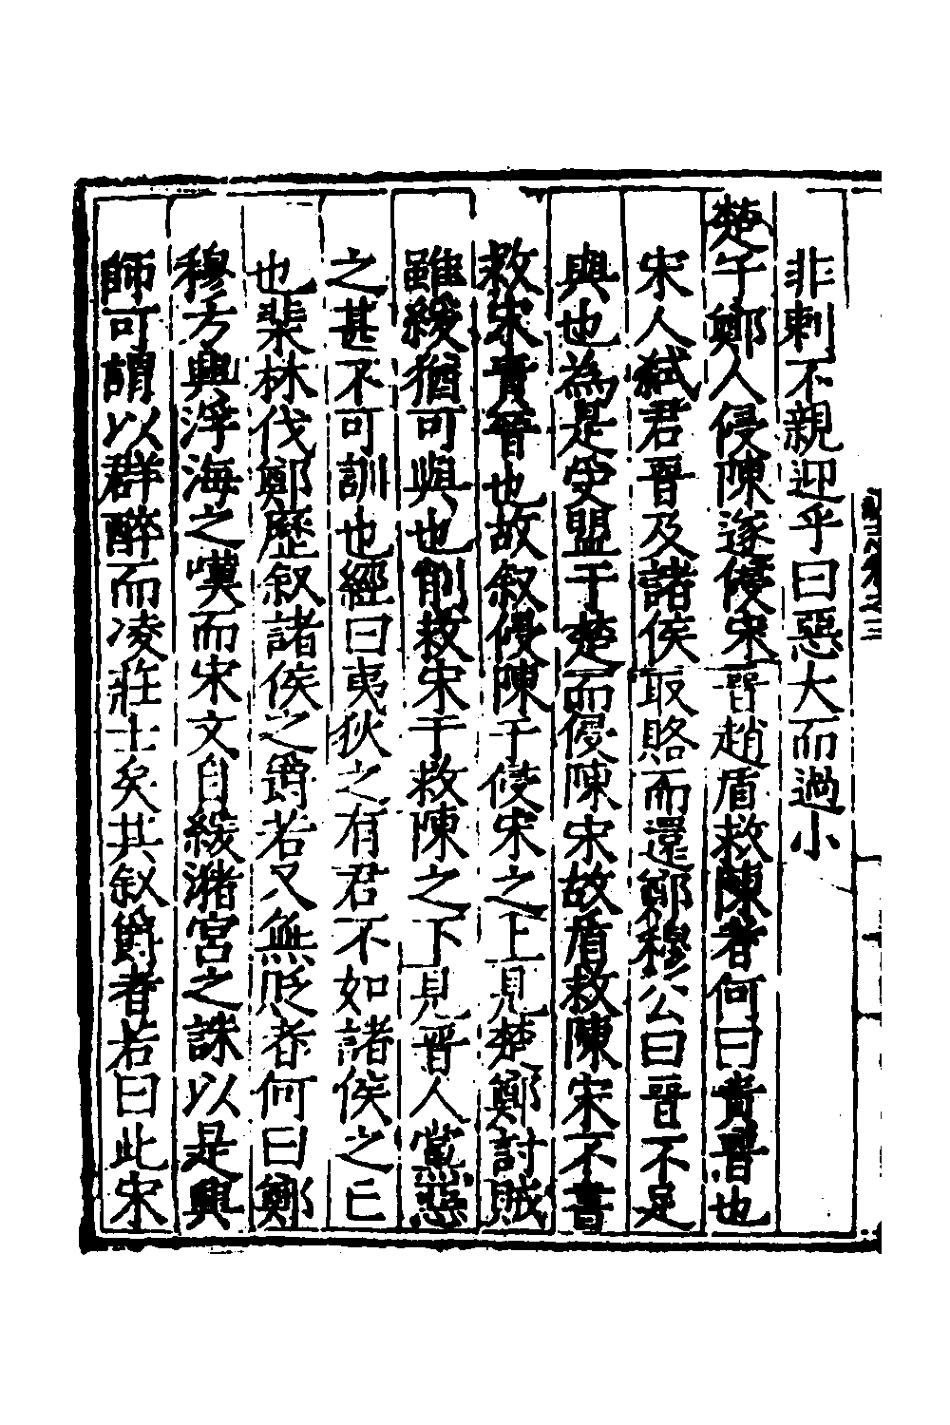 非刺不親迎乎曰惡大而過小
楚子鄭人侵陳遂侵宋晉趙盾救陳者何曰貴晉也
宋人弒君晉及諸侯取賂而還鄭穆公曰晉不足
與也為是受盟于楚而侵陳宋故盾救陳宋不書
救宋責晉也故叙侵陳于侵宋之上見楚鄭討賊
雖緩猶可與也削救宋于救陳之下見晉人黨惡
之甚不可訓也經曰夷狄之有君不如諸侯之亡
也棐林伐鄭歷叙諸侯之爵若又無貶者何曰鄭
穆方興浮海之嘆而宋文自緩瀦宮之誅以是興
師可謂以群醉而凌莊士矣其叙爵者若曰此宋